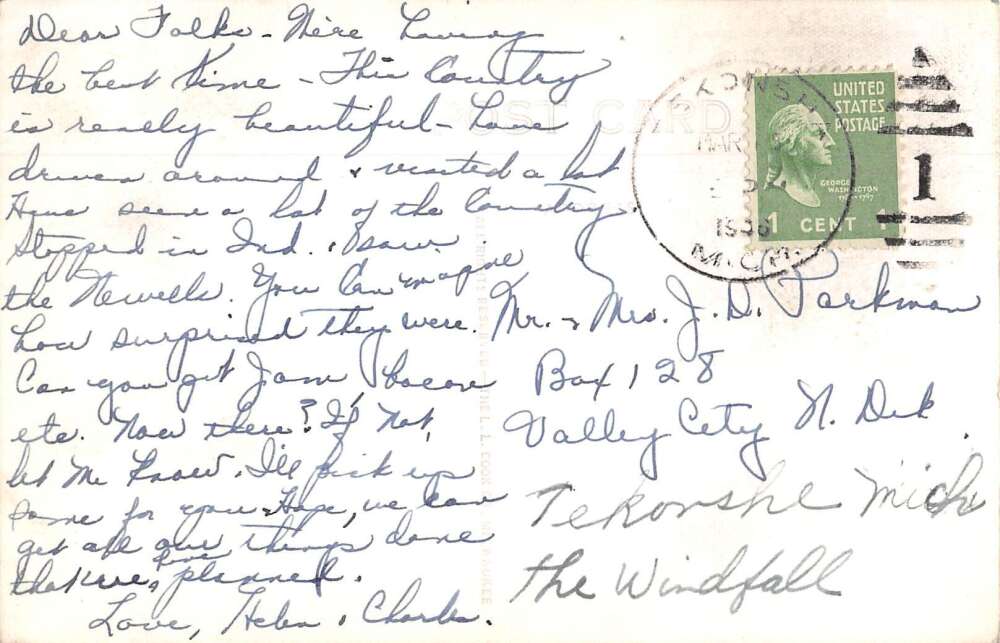 Dear Folks - We're Having
the best time - This Country
is really beautiful - Have
driven around & visited a lot
Have seen a lot of the Country.
Stopped in Ind. & saw
the Newells. You can imagine
how surprised they were.
Can you get Jam, bacon
etc. Now there? If Not,
let Me Know. I'll pick up
some for you. Hope, we can
get all our things done
that we have planned.
Love, Helen & Charles.
POST CARD
MAR
M.CH.
UNITED
STATES
POSTAGE
GEORGE
WASHINGTON
1 CENT 1
1
Mr. & Mrs. J. D. Parkman
Box 128
Valley City N. Dak
Tekonshe Mich
the Windfall